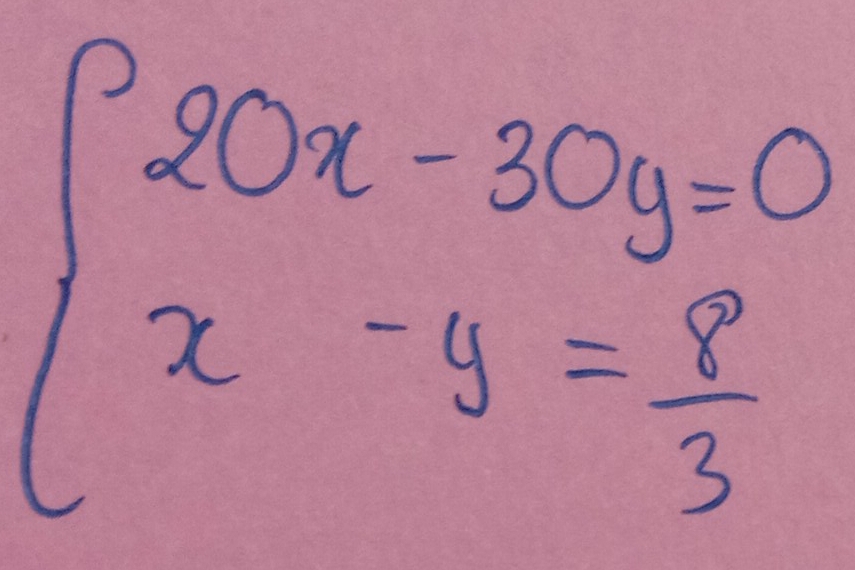 20x - 30y = 0
x - y = 8/3